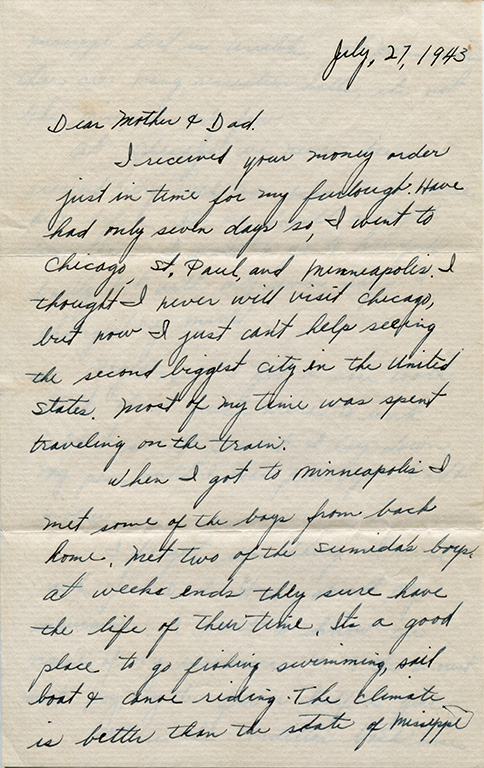 July, 27, 1943
Dear Mother & Dad.
I received your money order
just in time for my furlough. Have
had only seven days so, I went to
Chicago, St. Paul, and Minneapolis. I
thought I never will visit Chicago,
but now I just can't help seeing
the second biggest city in the United
States. Most of my time was spent
traveling on the train.
When I got to Minneapolis I
met some of the boys from back
home. Met two of the Sumida's boys.
at weeks ends they sure have
the life of their time. Its a good
place to go fishing swimming, sail
boat & canoe riding. The climate
is better than the state of Missippi